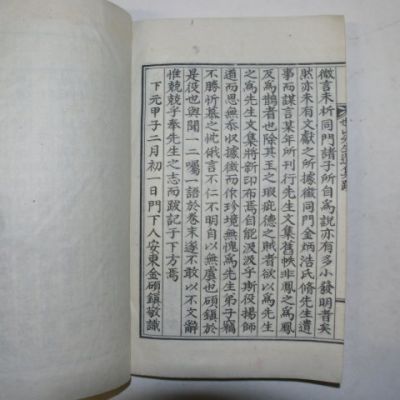 微言未析同門諸子所自爲說亦有多小發明者矣
然亦未有文獻之所據徵同門金炳浩氏脩先生遺
事而謀言某年所刊行先生文集舊帙非鳳之爲鳳
及爲鵲者也除其玉之瑕疵德之賊者欲以先生
之爲先生文集將新印布焉自能 乎斯役揚師
道而思無忝 據徵而作珍境無愧爲先生弟子竊
不勝忻慕之忱俄言不仁不明自以無虞也碩鎭於
是役也與聞一二囑一語於卷末遂不敢以不文辭
惟兢兢乎奉先生之志而跋記于下方焉
下元甲子二月初一日門下人安東金碩鎭敬識